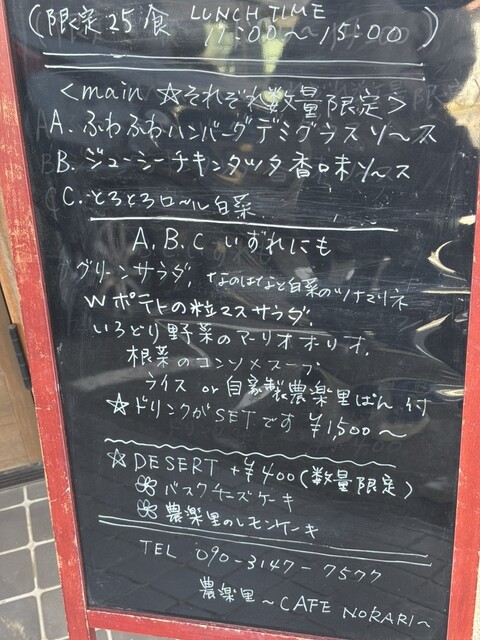 LUNCH TIME
(限定25食 11:00〜15:00)
<main ☆それぞれ数量限定>
A. ふわふわハンバーグデミグラスソース
B. ジューシーチキンタツタ香味ソース
C. とろとろロール白菜
A.B.C いずれにも
グリーンサラダ, なのはなと白菜のツナマリネ
Wポテトの粒マスサラダ,
いろどり野菜のアーリオオーリオ,
根菜のコンソメスープ
ライス or 自家製農楽里ぱん 付
☆ドリンクがSETです ¥1,500〜
☆DESERT +¥400(数量限定)
バスクチーズケーキ
農楽里のレモンケーキ
TEL 090-3147-7577
農楽里〜CAFE NORARI〜